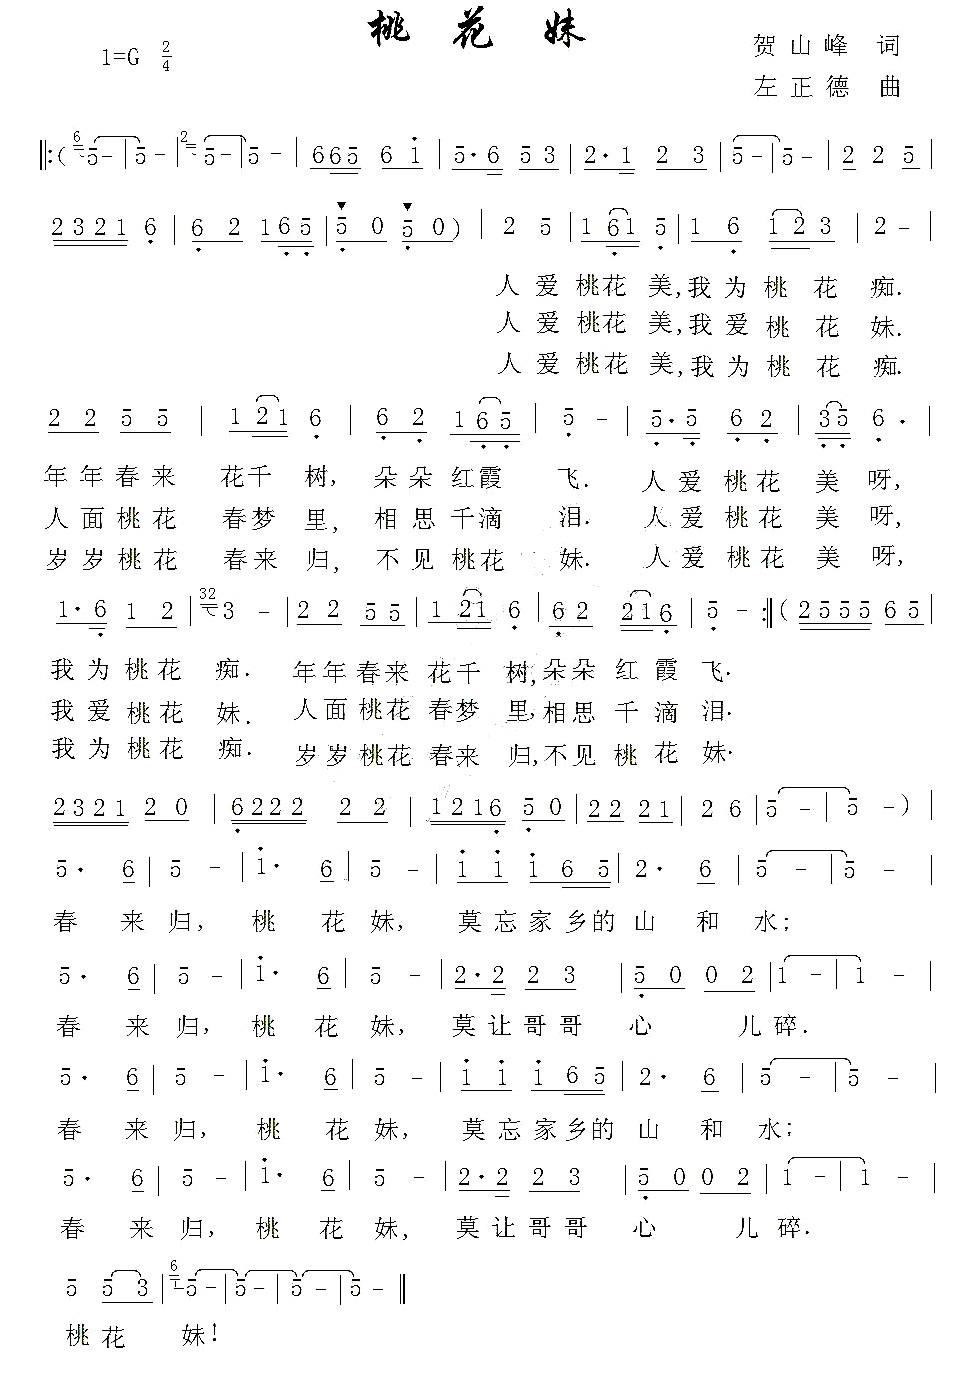 桃花妹
1=G 2/4
贺山峰 词
左正德 曲
‖:( 6 5 - | 5 - | 2 5 - | 5 - | 6 6 5 6 1 | 5· 6 5 3 | 2· 1 2 3 | 5 - | 5 - | 2 2 5 |
2 3 2 1 6 | 6 2 1 6 5 | 5 0 5 0 ) | 2 5 | 1 6 1 5 | 1 6 1 2 3 | 2 - |
人爱桃花美,我为桃花痴.
人爱桃花美,我爱桃花妹.
人爱桃花美,我为桃花痴.
2 2 5 5 | 1 2 1 6 | 6 2 1 6 5 | 5 - | 5· 5 6 2 | 3 5 6· |
年年春来花千树,朵朵红霞飞.人爱桃花美呀,
人面桃花春梦里,相思千滴泪.人爱桃花美呀,
岁岁桃花春来归,不见桃花妹.人爱桃花美呀,
1· 6 1 2 | 32 3 - | 2 2 5 5 | 1 2 1 6 | 6 2 2 1 6 | 5 - :‖ ( 2 5 5 5 6 5 |
我为桃花痴.年年春来花千树,朵朵红霞飞.
我爱桃花妹.人面桃花春梦里,相思千滴泪.
我为桃花痴.岁岁桃花春来归,不见桃花妹.
2 3 2 1 2 0 | 6 2 2 2 2 2 | 1 2 1 6 5 0 | 2 2 2 1 | 2 6 | 5 - | 5 - ) |
5· 6 | 5 - | 1· 6 | 5 - | 1 1 1 6 5 | 2· 6 | 5 - | 5 - |
春来归,桃花妹,莫忘家乡的山和水;
5· 6 | 5 - | 1· 6 | 5 - | 2· 2 2 3 | 5 0 0 2 | 1 - | 1 - |
春来归,桃花妹,莫让哥哥心儿碎.
5· 6 | 5 - | 1· 6 | 5 - | 1 1 1 6 5 | 2· 6 | 5 - | 5 - |
春来归,桃花妹,莫忘家乡的山和水;
5· 6 | 5 - | 1· 6 | 5 - | 2· 2 2 3 | 5 0 0 2 | 1 - | 1 - |
春来归,桃花妹,莫让哥哥心儿碎.
5 5 3 | 6 5 - | 5 - | 5 - | 5 - ‖
桃花妹!